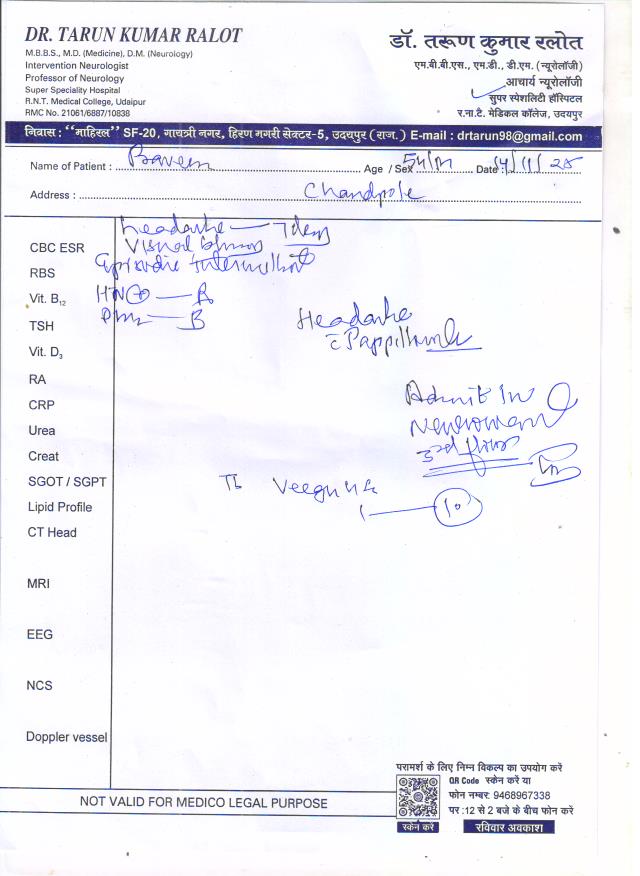 DR. TARUN KUMAR RALOT
M.B.B.S., M.D. (Medicine), D.M. (Neurology)
Intervention Neurologist
Professor of Neurology
Super Speciality Hospital
R.N.T. Medical College, Udaipur
RMC No. 21061/6887/10838
डॉ. तरूण कुमार रलोत
एम.बी.बी.एस., एम.डी., डी.एम. (न्यूरोलॉजी)
आचार्य न्यूरोलॉजी
सुपर स्पेशलिटी हॉस्पिटल
र.ना.टै. मेडिकल कॉलेज, उदयपुर
निवास : "माहिरल" SF-20, गायत्री नगर, हिरण मगरी सेक्टर-5, उदयपुर (राज.) E-mail : drtarun98@gmail.com
Name of Patient : Age / Sex 54/M Date : 14/11/25
Address : Chandpole
Headache — 7 days
Visual
Episodic Intermittent
CBC ESR
RBS
Vit. B12
TSH
Vit. D3
RA
CRP
Urea
Creat
SGOT / SGPT
Lipid Profile
CT Head
MRI
EEG
NCS
Doppler vessel
Headache
Admit In
3rd floor
10
NOT VALID FOR MEDICO LEGAL PURPOSE
परामर्श के लिए निम्न विकल्प का उपयोग करें
QR Code स्केन करें या
फोन नम्बर: 9468967338
पर :12 से 2 बजे के बीच फोन करें
स्केन करें
रविवार अवकाश